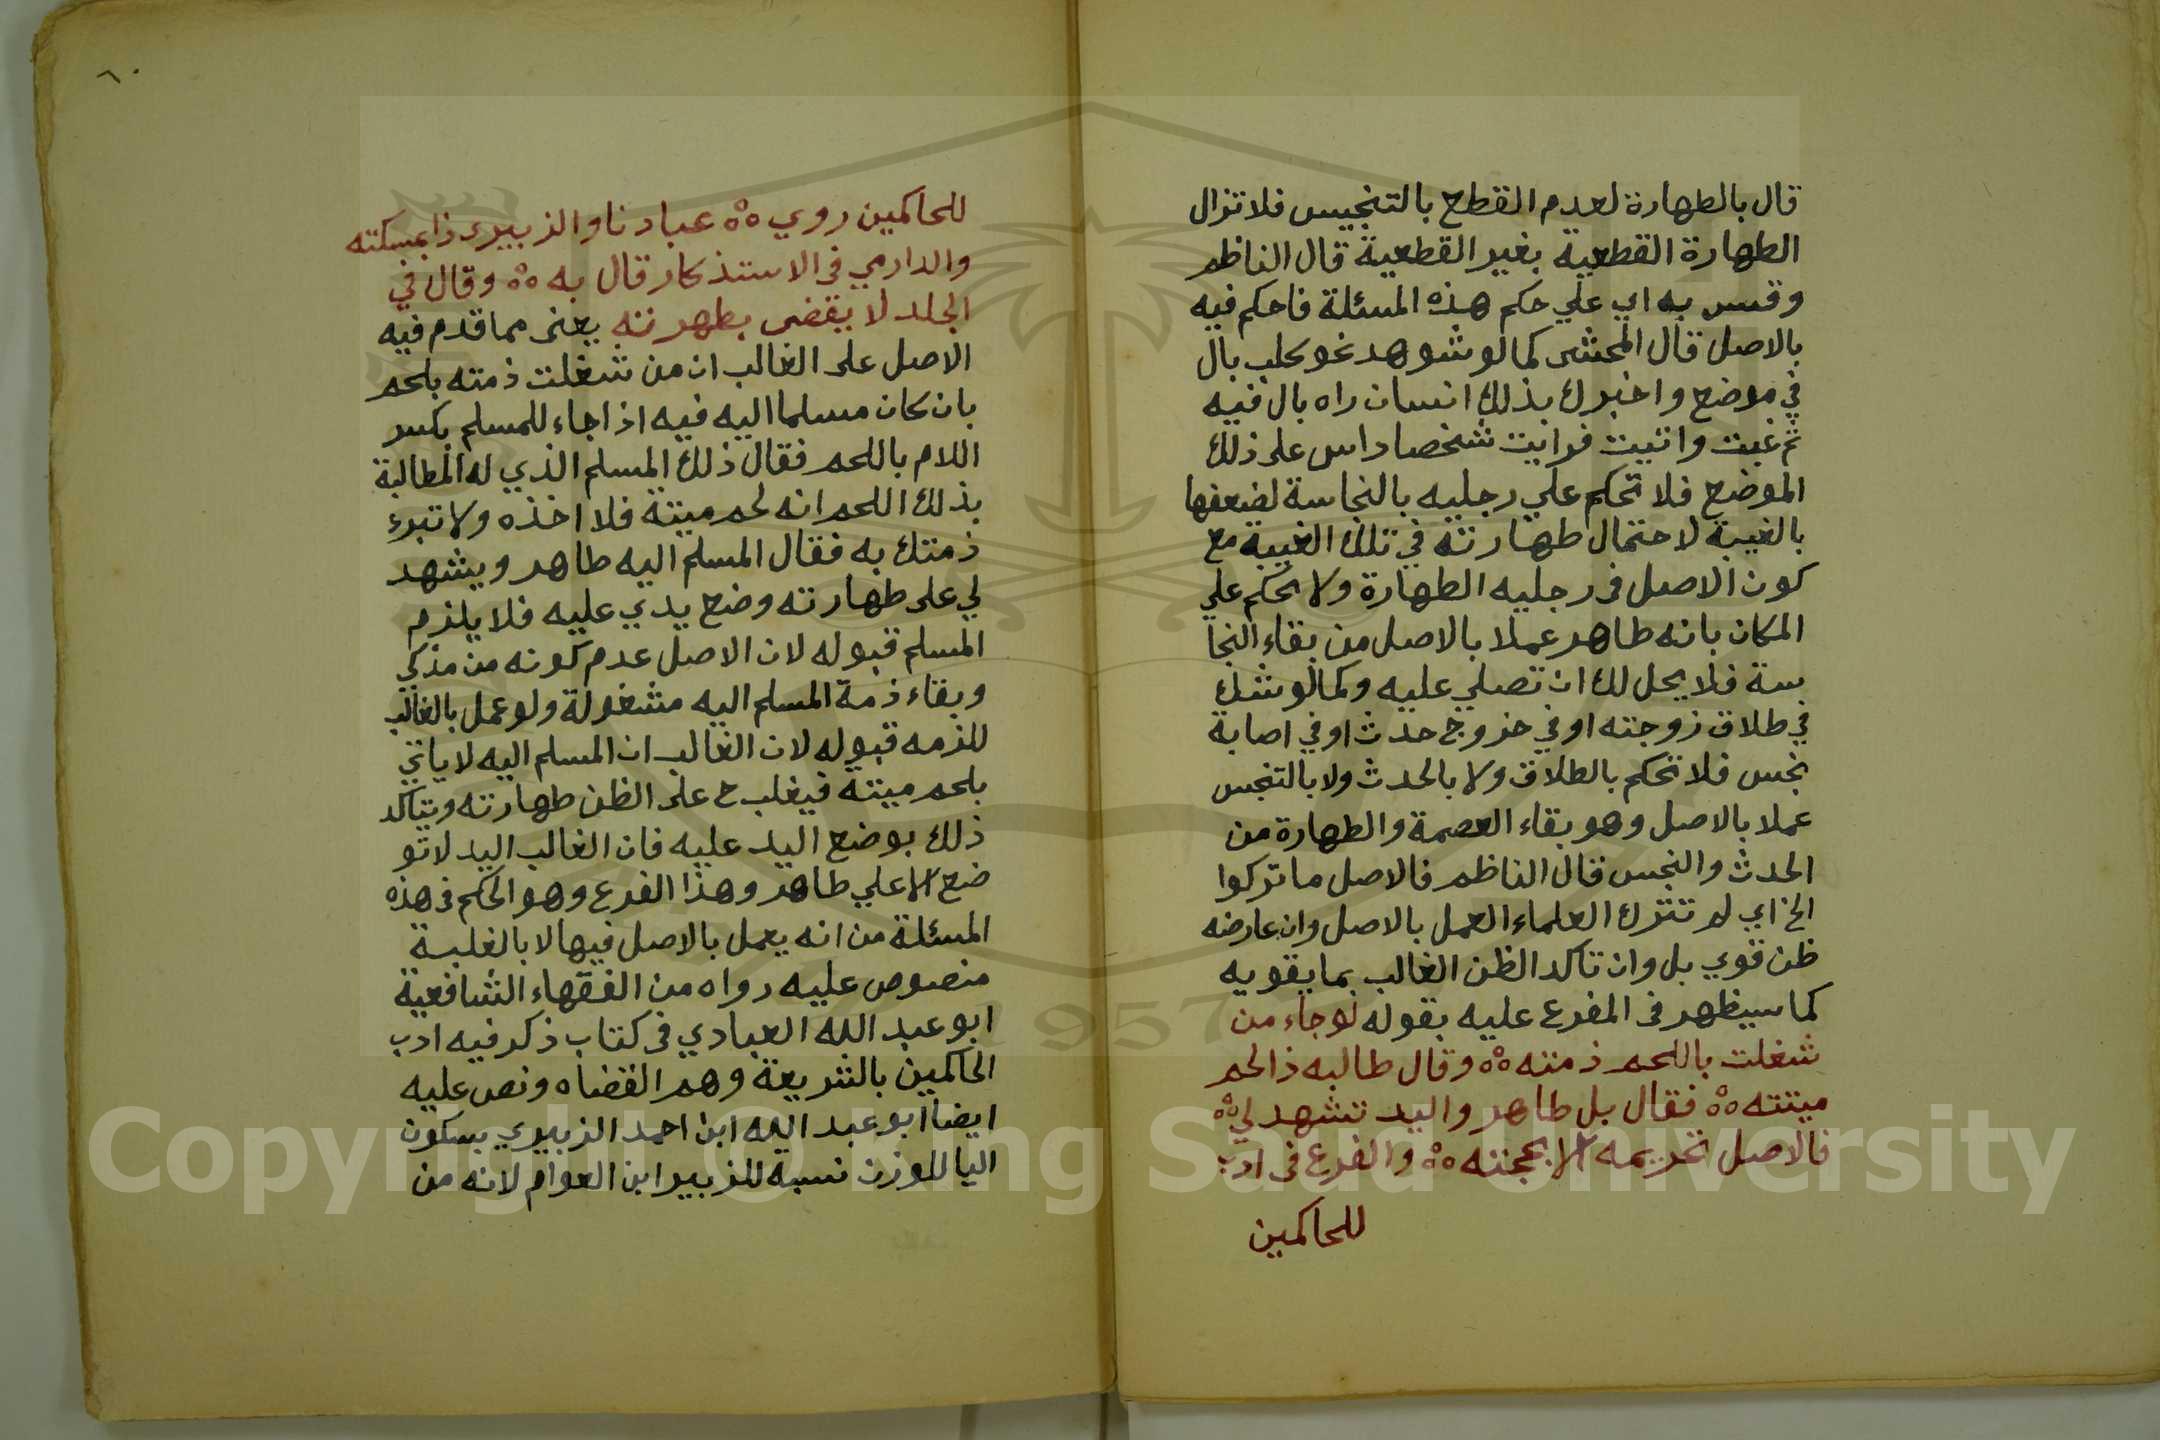 قال بالطهارة لعدم القطع بالتنجيس فلا تزال
الطهارة القطعية بغير القطعية قال الناظم
وقس به اي علي حكم هذه المسئلة فاحكم فيه
بالاصل قال المحشى كما لو شوهد نحو كلب بال
في موضع واخبرك بذلك انسان راه بال فيه
ثم غبت واتيت فرايت شخصا داس على ذلك
الموضع فلا تحكم علي رجليه بالنجاسة لضعفها
بالغيبة لاحتمال طهارته في تلك الغيبة مع
كون الاصل فى رجليه الطهارة ولا يحكم علي
المكان بانه طاهر عملا بالاصل من بقاء النجا
سة فلا يحل لك ان تصلي عليه وكما لو شك
في طلاق زوجته او في خروج حدث او في اصابة
نجس فلا تحكم بالطلاق ولا بالحدث ولا بالتنجس
عملا بالاصل وهو بقاء العصمة والطهارة من
الحدث والنجس قال الناظم فالاصل ما تركوا
الخ اي لم تترك العلماء العمل بالاصل وان عارضه
ظن قوي بل وان تاكد الظن الغالب بما يقويه
كما سيظهر فى المفرع عليه بقوله لو جاء من
شغلت باللحم ذمته ٥٥ وقال طالبه ذا لحم
ميتته ٥٥ فقال بل طاهر واليد تشهد لي ٥٥
فالاصل تحريمه الا بحجته ٥٥ والفرع فى ادب
للحاكمين
٦٠
للحاكمين روي ٥٥ عبادنا والزبيرى ذا بمسكته
والدارمي فى الاستذكار قال به ٥٥ وقال في
الجلد لا يقضى بطهرته يعنى مما قدم فيه
الاصل على الغالب ان من شغلت ذمته بلحم
بان كان مسلما اليه فيه اذا جاء للمسلم بكسر
اللام باللحم فقال ذلك المسلم الذي له المطالبة
بذلك اللحم انه لحم ميتة فلا اخذه ولا تبرء
ذمتك به فقال المسلم اليه طاهر ويشهد
لي على طهارته وضع يدي عليه فلا يلزم
المسلم قبوله لان الاصل عدم كونه من مذكي
وبقاء ذمة المسلم اليه مشغولة ولو عمل بالغالب
للزمه قبوله لان الغالب ان المسلم اليه لا ياتي
بلحم ميتة فيغلب ح على الظن طهارته ويتاكد
ذلك بوضع اليد عليه فان الغالب اليد لا تو
ضع الا علي طاهر وهذا الفرع وهو الحكم فى هذه
المسئلة من انه يعمل بالاصل فيها لا بالغلبة
منصوص عليه رواه من الفقهاء الشافعية
ابو عبد الله العبادي فى كتاب ذكر فيه ادب
الحاكمين بالشريعة وهم القضاه ونص عليه
ايضا ابو عبد الله ابن احمد الزبيري بسكون
اليا للوزن نسبة للزبير ابن العوام لانه من
1957
Copyright © King Saud University